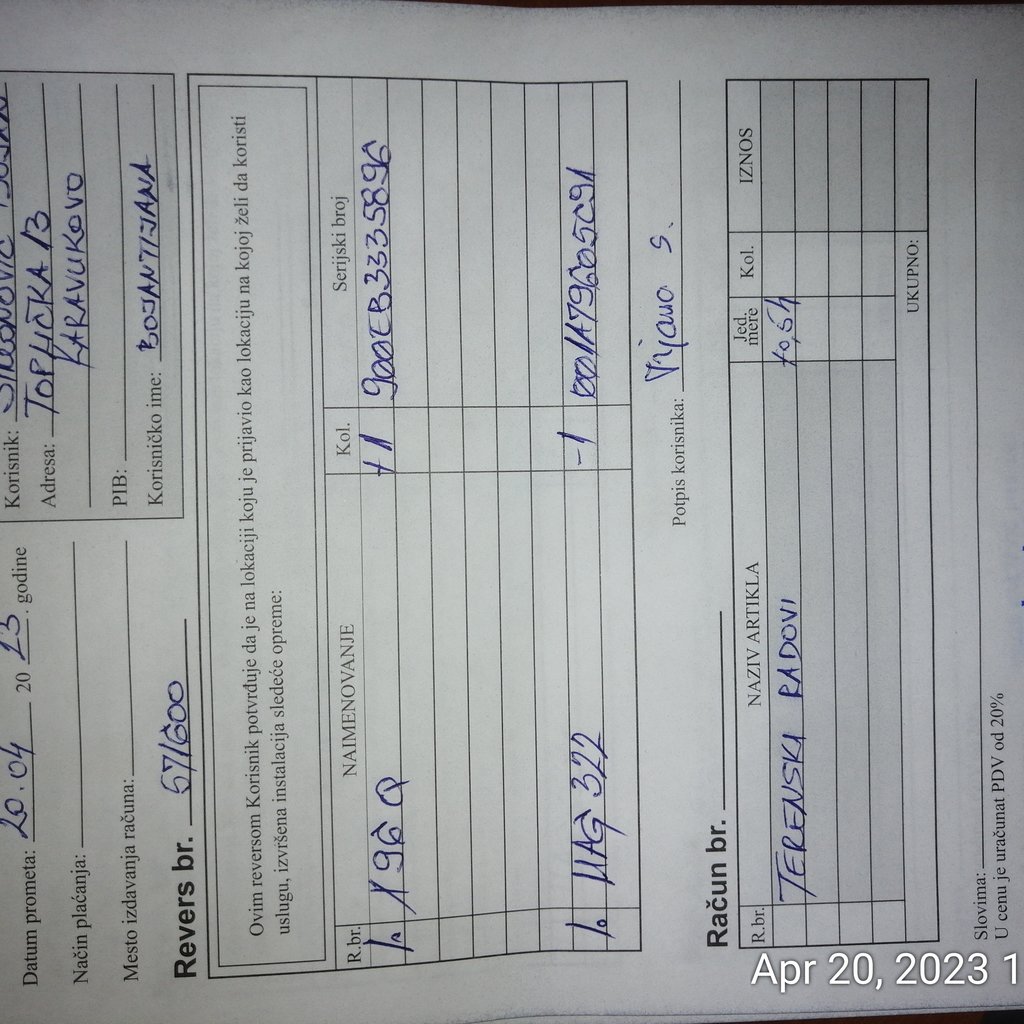 Datum prometa: 20.04 2023. godine
Način plaćanja:
Mesto izdavanja računa:
Korisnik:
Adresa: TOPLIČKA 13
KARAVUKOVO
PIB:
Korisničko ime: BOJANTIJANA
Revers br. 571600
Ovim reversom Korisnik potvrđuje da je na lokaciji koju je prijavio kao lokaciju na kojoj želi da koristi
uslugu, izvršena instalacija sledeće opreme:
R.br. NAIMENOVANJE Kol. Serijski broj
1. 196 Q +1 900EB3335896
1. MAG 322 -1 001A79605C91
Potpis korisnika: S.
Račun br.
R.br. NAZIV ARTIKLA Jed. mere Kol. IZNOS
TERENSKI RADOVI +0,5h
UKUPNO:
Slovima:
U cenu je uračunat PDV od 20%
Apr 20, 2023 1